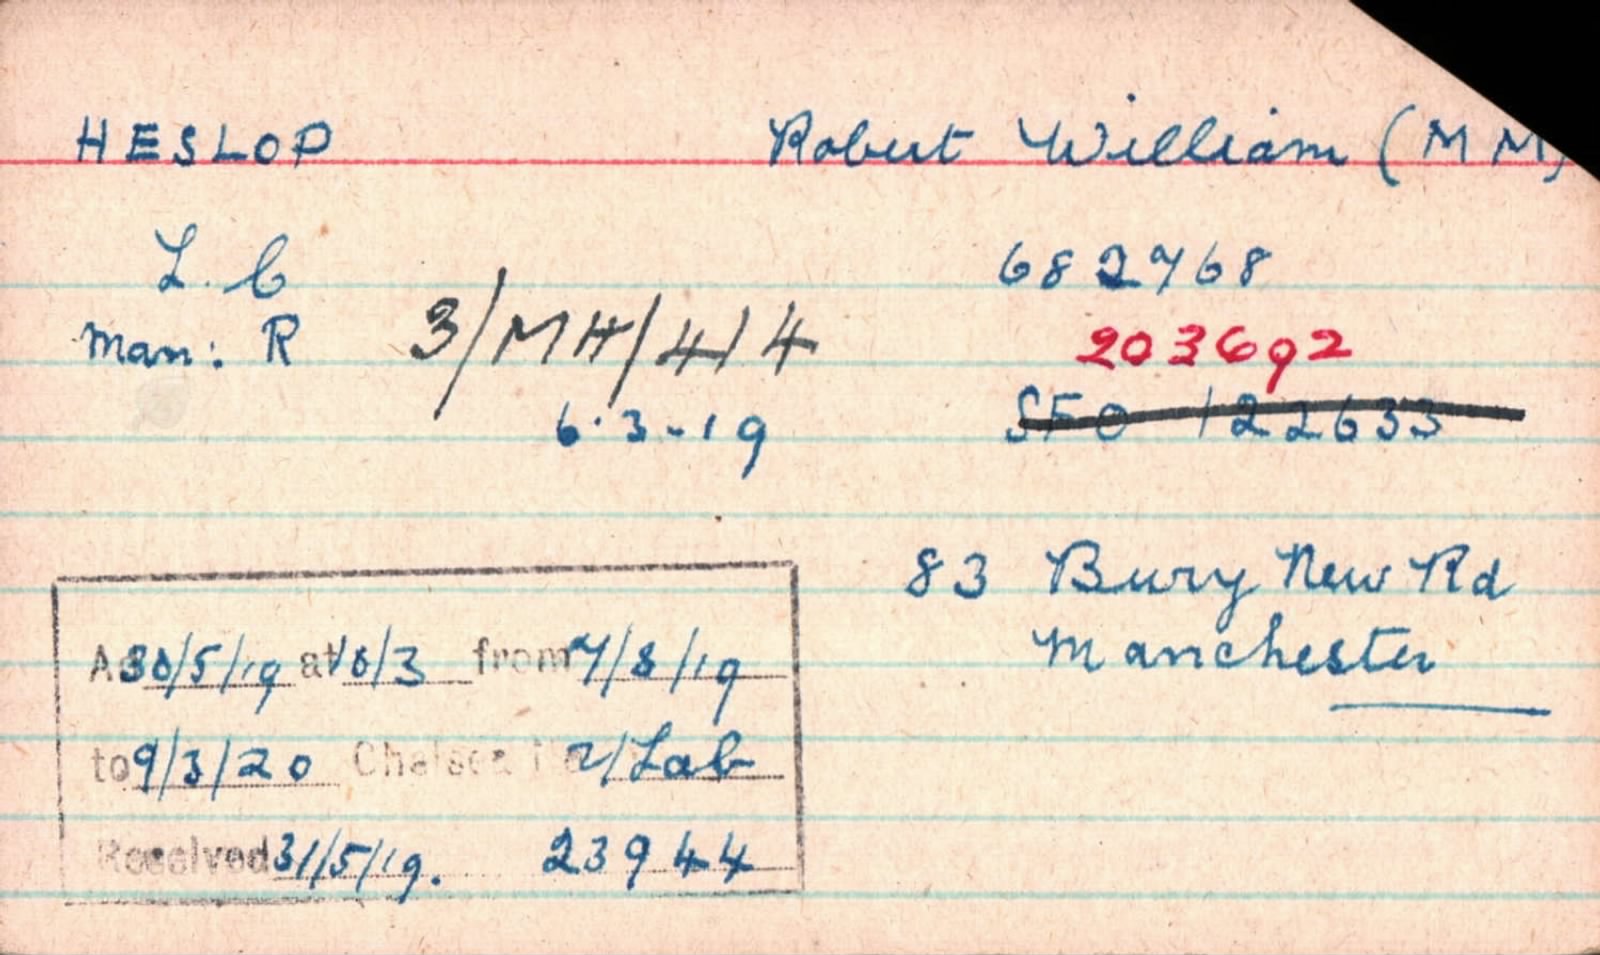 HESLOP Robert William (MM)
L. C 682768
Man: R 3/MH/414 203692
6.3-19 SFO 122633
83 Bury New Rd
Manchester
30/5/19 at 10/3 from 7/8/19
to 9/3/20 Chelsea 2/Lab
Received 31/5/19. 23944